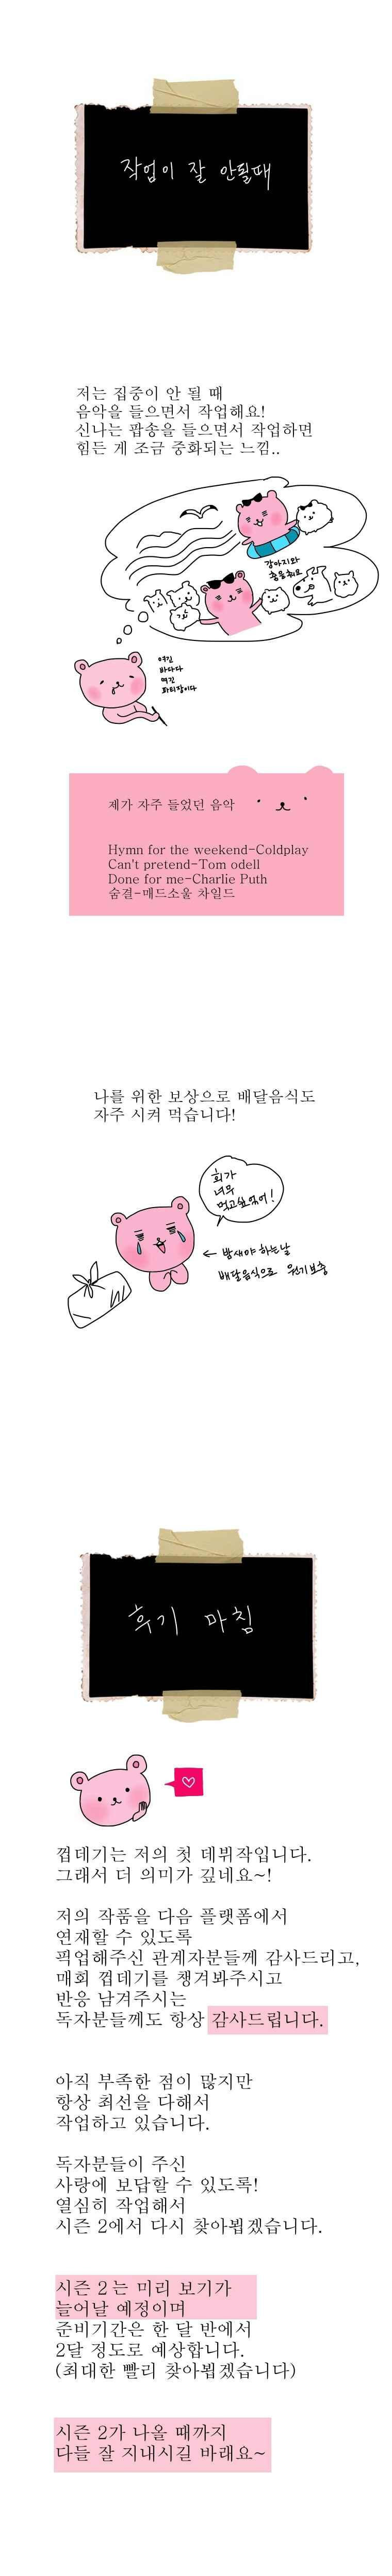 작업이 잘 안될때
저는 집중이 안 될 때
음악을 들으면서 작업해요!
신나는 팝송을 들으면서 작업하면
힘든 게 조금 중화되는 느낌..
강아지와
춤을춰요
여긴
바다다
여긴
파티장이다
제가 자주 들었던 음악
Hymn for the weekend-Coldplay
Can't pretend-Tom odell
Done for me-Charlie Puth
숨결-매드소울 차일드
나를 위한 보상으로 배달음식도
자주 시켜 먹습니다!
회가
너무
먹고싶었어!
← 밤새야 하는날
배달음식으로 원기보충
후기 마침
껍데기는 저의 첫 데뷔작입니다.
그래서 더 의미가 깊네요~!
저의 작품을 다음 플랫폼에서
연재할 수 있도록
픽업해주신 관계자분들께 감사드리고,
매회 껍데기를 챙겨봐주시고
반응 남겨주시는
독자분들께도 항상 감사드립니다.
아직 부족한 점이 많지만
항상 최선을 다해서
작업하고 있습니다.
독자분들이 주신
사랑에 보답할 수 있도록!
열심히 작업해서
시즌 2에서 다시 찾아뵙겠습니다.
시즌 2는 미리 보기가
늘어날 예정이며
준비기간은 한 달 반에서
2달 정도로 예상합니다.
(최대한 빨리 찾아뵙겠습니다)
시즌 2가 나올 때까지
다들 잘 지내시길 바래요~